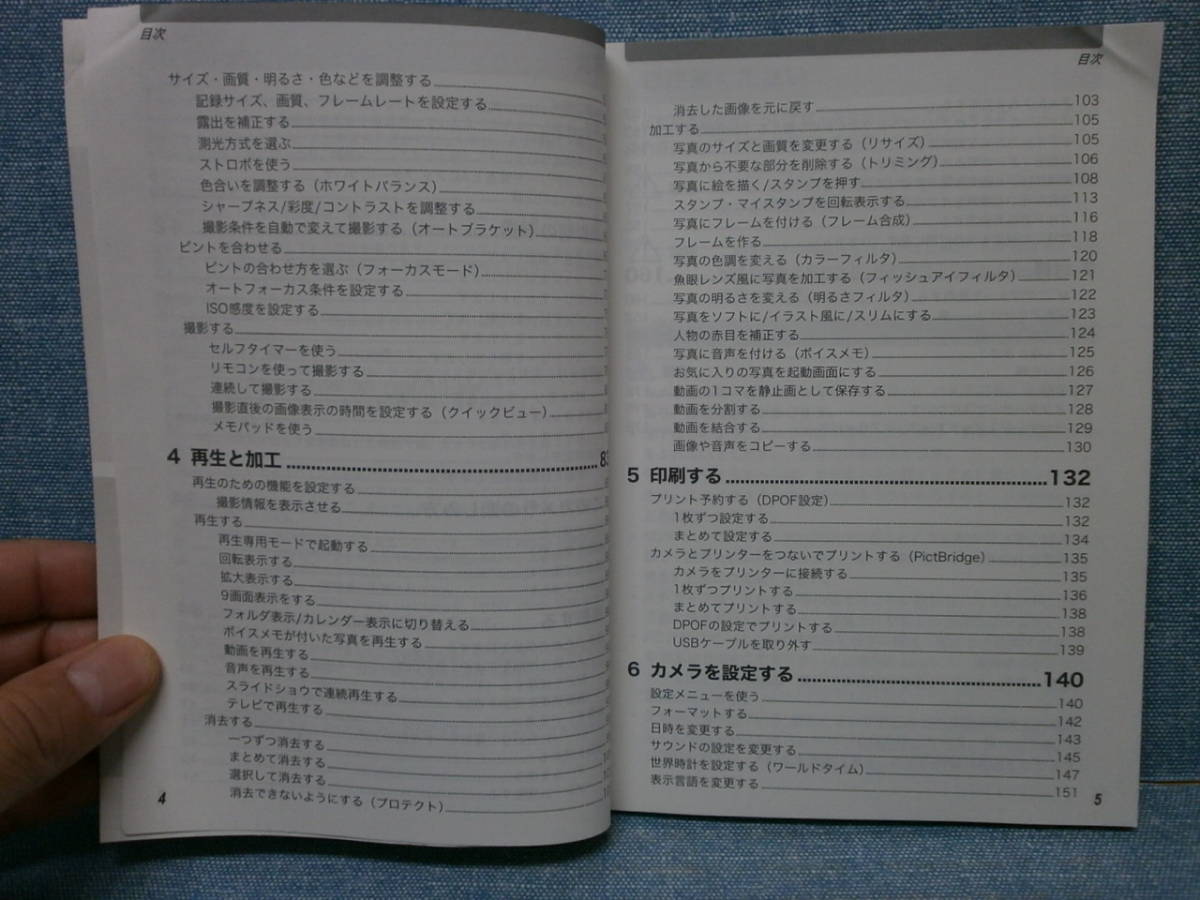 目次
サイズ・画質・明るさ・色などを調整する
記録サイズ、画質、フレームレートを設定する
露出を補正する
測光方式を選ぶ
ストロボを使う
色合いを調整する（ホワイトバランス）
シャープネス/彩度/コントラストを調整する
撮影条件を自動で変えて撮影する（オートブラケット）
ピントを合わせる
ピントの合わせ方を選ぶ（フォーカスモード）
オートフォーカス条件を設定する
ISO感度を設定する
撮影する
セルフタイマーを使う
リモコンを使って撮影する
連続して撮影する
撮影直後の画像表示の時間を設定する（クイックビュー）
メモパッドを使う
4 再生と加工 83
再生のための機能を設定する
撮影情報を表示させる
再生する
再生専用モードで起動する
回転表示する
拡大表示する
9画面表示をする
フォルダ表示/カレンダー表示に切り替える
ボイスメモが付いた写真を再生する
動画を再生する
音声を再生する
スライドショウで連続再生する
テレビで再生する
消去する
一つずつ消去する
まとめて消去する
選択して消去する
消去できないようにする（プロテクト）
4
目次
消去した画像を元に戻す 103
加工する 105
写真のサイズと画質を変更する（リサイズ） 105
写真から不要な部分を削除する（トリミング） 106
写真に絵を描く/スタンプを押す 108
スタンプ・マイスタンプを回転表示する 113
写真にフレームを付ける（フレーム合成） 116
フレームを作る 118
写真の色調を変える（カラーフィルタ） 120
魚眼レンズ風に写真を加工する（フィッシュアイフィルタ） 121
写真の明るさを変える（明るさフィルタ） 122
写真をソフトに/イラスト風に/スリムにする 123
人物の赤目を補正する 124
写真に音声を付ける（ボイスメモ） 125
お気に入りの写真を起動画面にする 126
動画の1コマを静止画として保存する 127
動画を分割する 128
動画を結合する 129
画像や音声をコピーする 130
5 印刷する 132
プリント予約する（DPOF設定） 132
1枚ずつ設定する 132
まとめて設定する 134
カメラとプリンターをつないでプリントする（PictBridge） 135
カメラをプリンターに接続する 135
1枚ずつプリントする 136
まとめてプリントする 138
DPOFの設定でプリントする 138
USBケーブルを取り外す 139
6 カメラを設定する 140
設定メニューを使う 140
フォーマットする 142
日時を変更する 143
サウンドの設定を変更する 145
世界時計を設定する（ワールドタイム） 147
表示言語を変更する 151
5